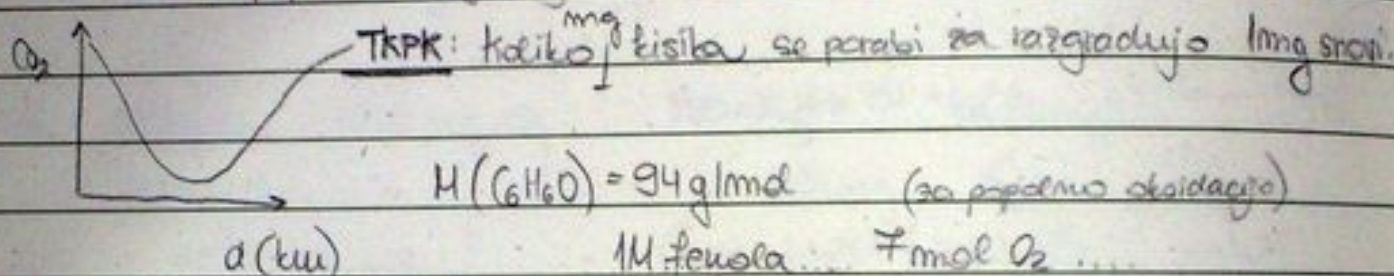 O₂ TKPK: Koliko mg kisika se porabi za razgradnjo 1mg snovi.
M(C₆H₆O) = 94 g/mol (za popolno oksidacijo)
d (km) 1M fenola... 7 mol O₂ ....